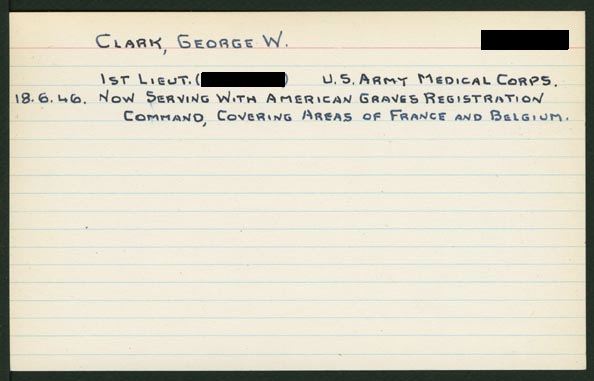 CLARK, GEORGE W.
1ST LIEUT. ( ) U.S. ARMY MEDICAL CORPS.
18.6.46. NOW SERVING WITH AMERICAN GRAVES REGISTRATION
COMMAND, COVERING AREAS OF FRANCE AND BELGIUM.